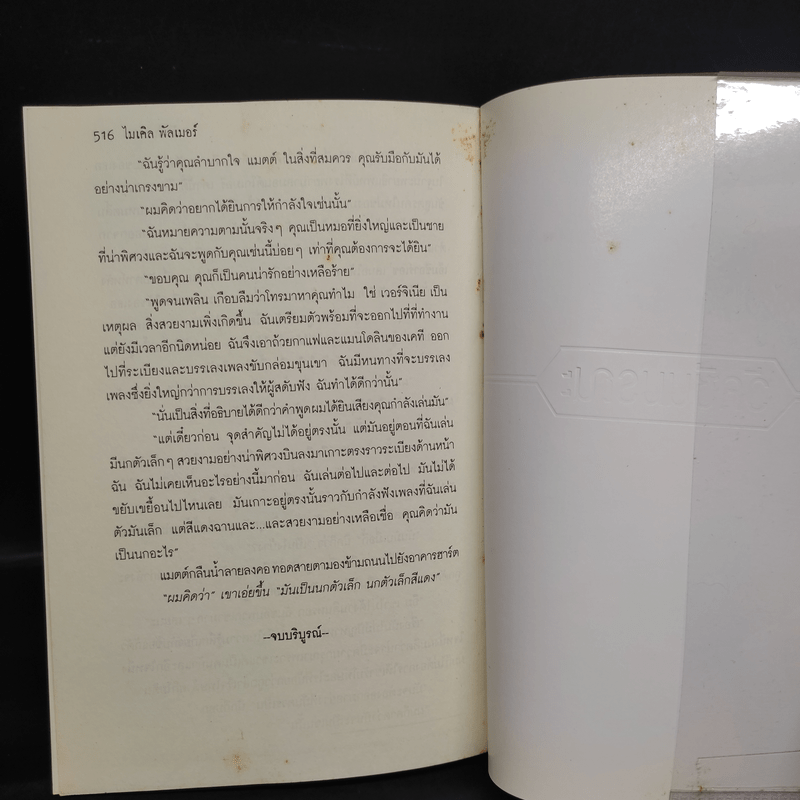 516 ไมเคิล พัลเมอร์
"ฉันรู้ว่าคุณลำบากใจ แมตต์ ในสิ่งที่สมควร คุณรับมือกับมันได้
อย่างน่าเกรงขาม"
"ผมคิดว่าอยากได้ยินการให้กำลังใจเช่นนั้น"
"ฉันหมายความตามนั้นจริงๆ คุณเป็นหมอที่ยิ่งใหญ่และเป็นชาย
ที่น่าพิศวงและฉันจะพูดกับคุณเช่นนี้บ่อยๆ เท่าที่คุณต้องการจะได้ยิน"
"ขอบคุณ คุณก็เป็นคนน่ารักอย่างเหลือร้าย"
"พูดจนเพลิน เกือบลืมว่าโทรมาหาคุณทำไม ใช่ เวอร์จิเนีย เป็น
เหตุผล สิ่งสวยงามเพิ่งเกิดขึ้น ฉันเตรียมตัวพร้อมที่จะออกไปที่ที่ทำงาน
แต่ยังมีเวลาอีกนิดหน่อย ฉันจึงเอาถ้วยกาแฟและแมนโดลินของเคที ออก
ไปที่ระเบียงและบรรเลงเพลงขับกล่อมขุนเขา ฉันมีหนทางที่จะบรรเลง
เพลงซึ่งยิ่งใหญ่กว่าการบรรเลงให้ผู้สดับฟัง ฉันทำได้ดีกว่านั้น"
"นั่นเป็นสิ่งที่อธิบายได้ดีกว่าคำพูดผมได้ยินเสียงคุณกำลังเล่นมัน"
"แต่เดี๋ยวก่อน จุดสำคัญไม่ได้อยู่ตรงนั้น แต่มันอยู่ตอนที่ฉันเล่น
มีนกตัวเล็กๆ สวยงามอย่างน่าพิศวงบินลงมาเกาะตรงราวระเบียงด้านหน้า
ฉัน ฉันไม่เคยเห็นอะไรอย่างนี้มาก่อน ฉันเล่นต่อไปและต่อไป มันไม่ได้
ขยับเขยื้อนไปไหนเลย มันเกาะอยู่ตรงนั้นราวกับกำลังฟังเพลงที่ฉันเล่น
ตัวมันเล็ก แต่สีแดงฉานและ...และสวยงามอย่างเหลือเชื่อ คุณคิดว่ามัน
เป็นนกอะไร"
แมตต์กลืนน้ำลายลงคอ ทอดสายตามองข้ามถนนไปยังอาคารฮาร์ต
"ผมคิดว่า" เขาเอ่ยขึ้น "มันเป็นนกตัวเล็ก นกตัวเล็กสีแดง"
--จบบริบูรณ์--